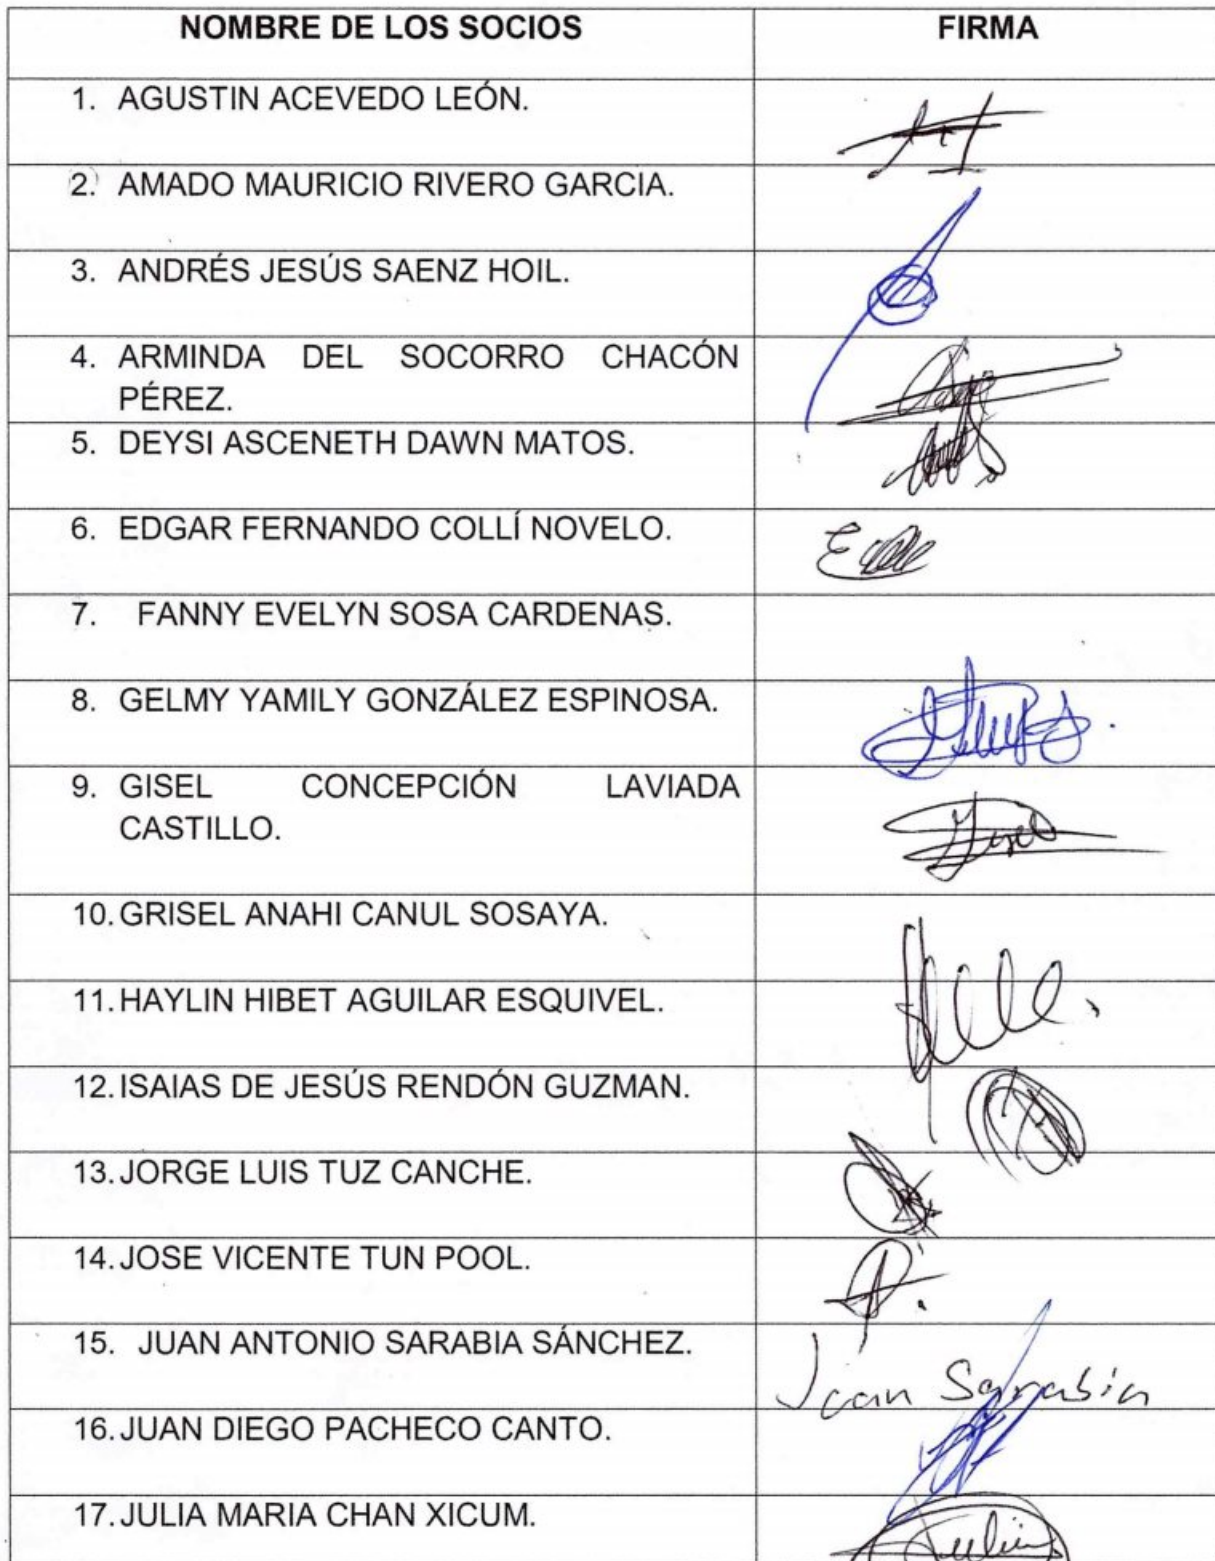 NOMBRE DE LOS SOCIOS FIRMA
1. AGUSTIN ACEVEDO LEÓN.
2. AMADO MAURICIO RIVERO GARCIA.
3. ANDRÉS JESÚS SAENZ HOIL.
4. ARMINDA DEL SOCORRO CHACÓN
PÉREZ.
5. DEYSI ASCENETH DAWN MATOS.
6. EDGAR FERNANDO COLLÍ NOVELO.
7. FANNY EVELYN SOSA CARDENAS.
8. GELMY YAMILY GONZÁLEZ ESPINOSA.
9. GISEL CONCEPCIÓN LAVIADA
CASTILLO.
10. GRISEL ANAHI CANUL SOSAYA.
11. HAYLIN HIBET AGUILAR ESQUIVEL.
12. ISAIAS DE JESÚS RENDÓN GUZMAN.
13. JORGE LUIS TUZ CANCHE.
14. JOSE VICENTE TUN POOL.
15. JUAN ANTONIO SARABIA SÁNCHEZ.
Juan Sarabia
16. JUAN DIEGO PACHECO CANTO.
17. JULIA MARIA CHAN XICUM.